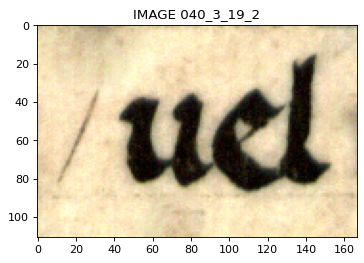 IMAGE 040_3_19_2
0
20
40
60
80
100
/ uel
0 20 40 60 80 100 120 140 160